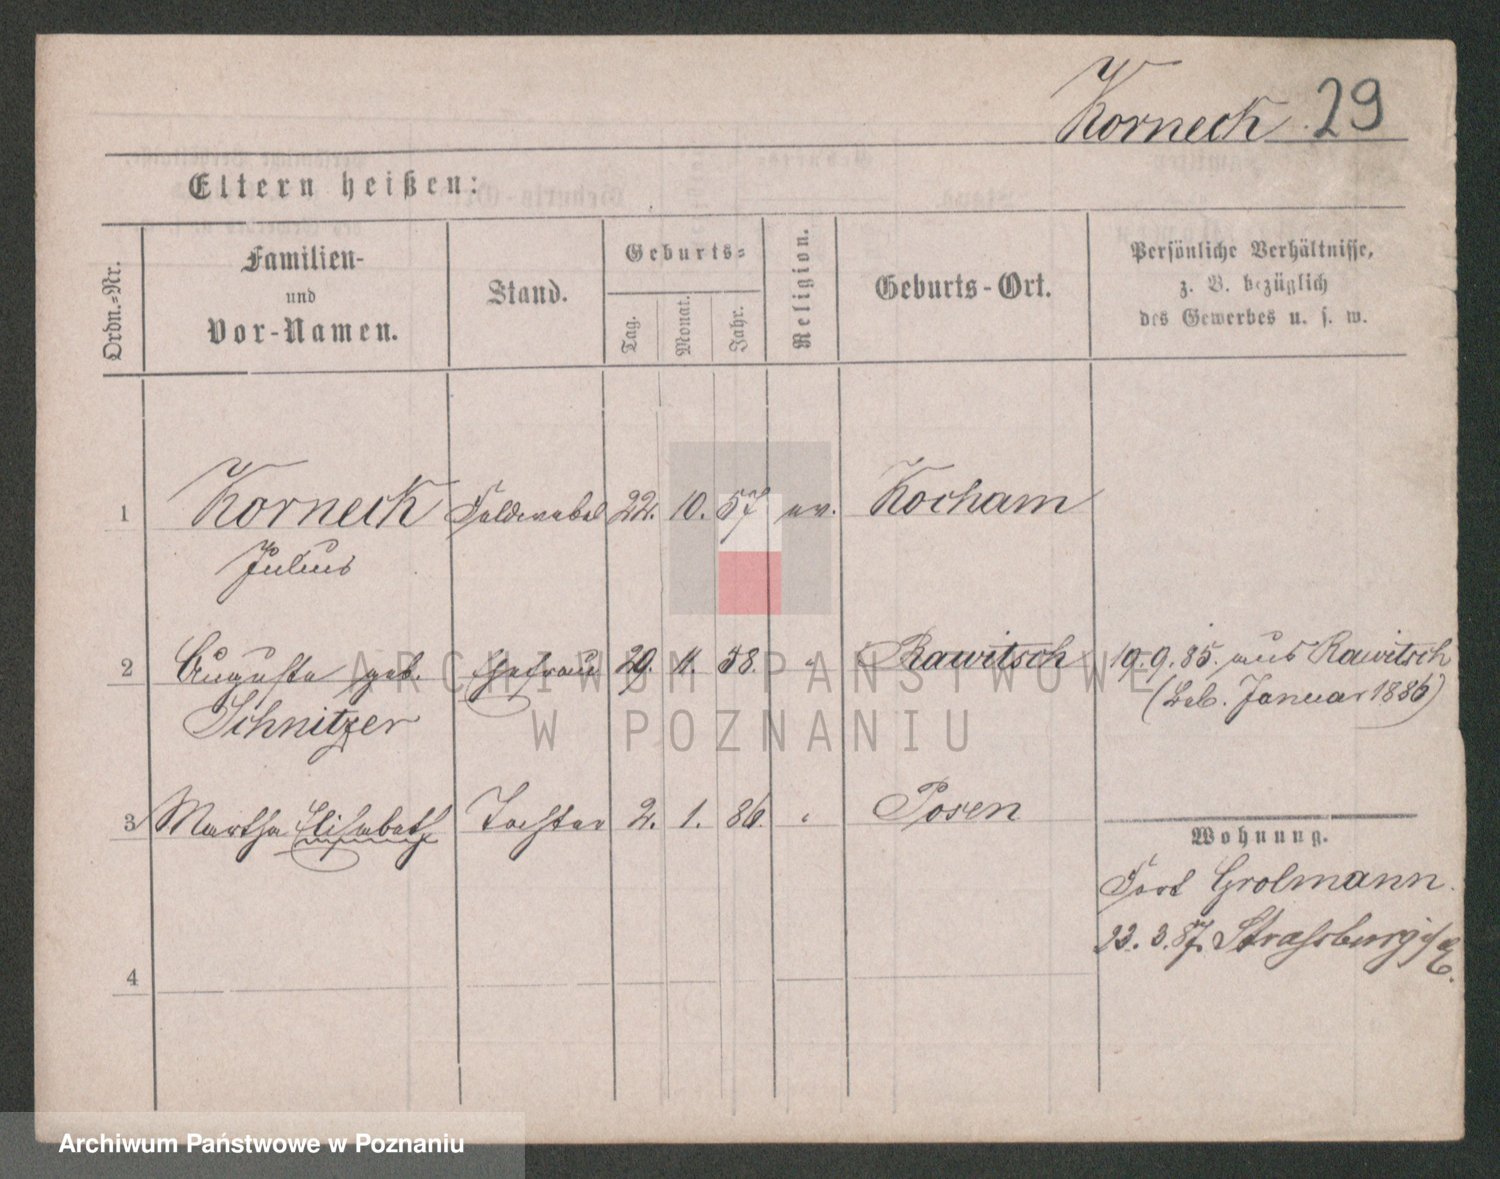 Korneck 29
Eltern heißen:
Ordn.=Nr.
Familien-
und
Vor-Namen.
Stand.
Geburts=
Tag.
Monat.
Jahr.
Religion.
Geburts-Ort.
Persönliche Verhältnisse,
z. B. bezüglich
des Gewerbes u. s. w.
1 Korneck Feldwebel 22. 10. 57 ev. Kocham
Julius
2 Auguste geb. Ehefrau 29. 11. 58. " Rawitsch 19.9.85. aus Rawitsch
Schnitzer (Leb. Januar 1886)
3 Martha Elisabeth Tochter 2. 1. 86. " Posen
Wohnung.
Fort Grolmann.
23.3.87. Strassburg i/E.
4
ARCHIWUM PAŃSTWOWE
W POZNANIU
Archiwum Państwowe w Poznaniu